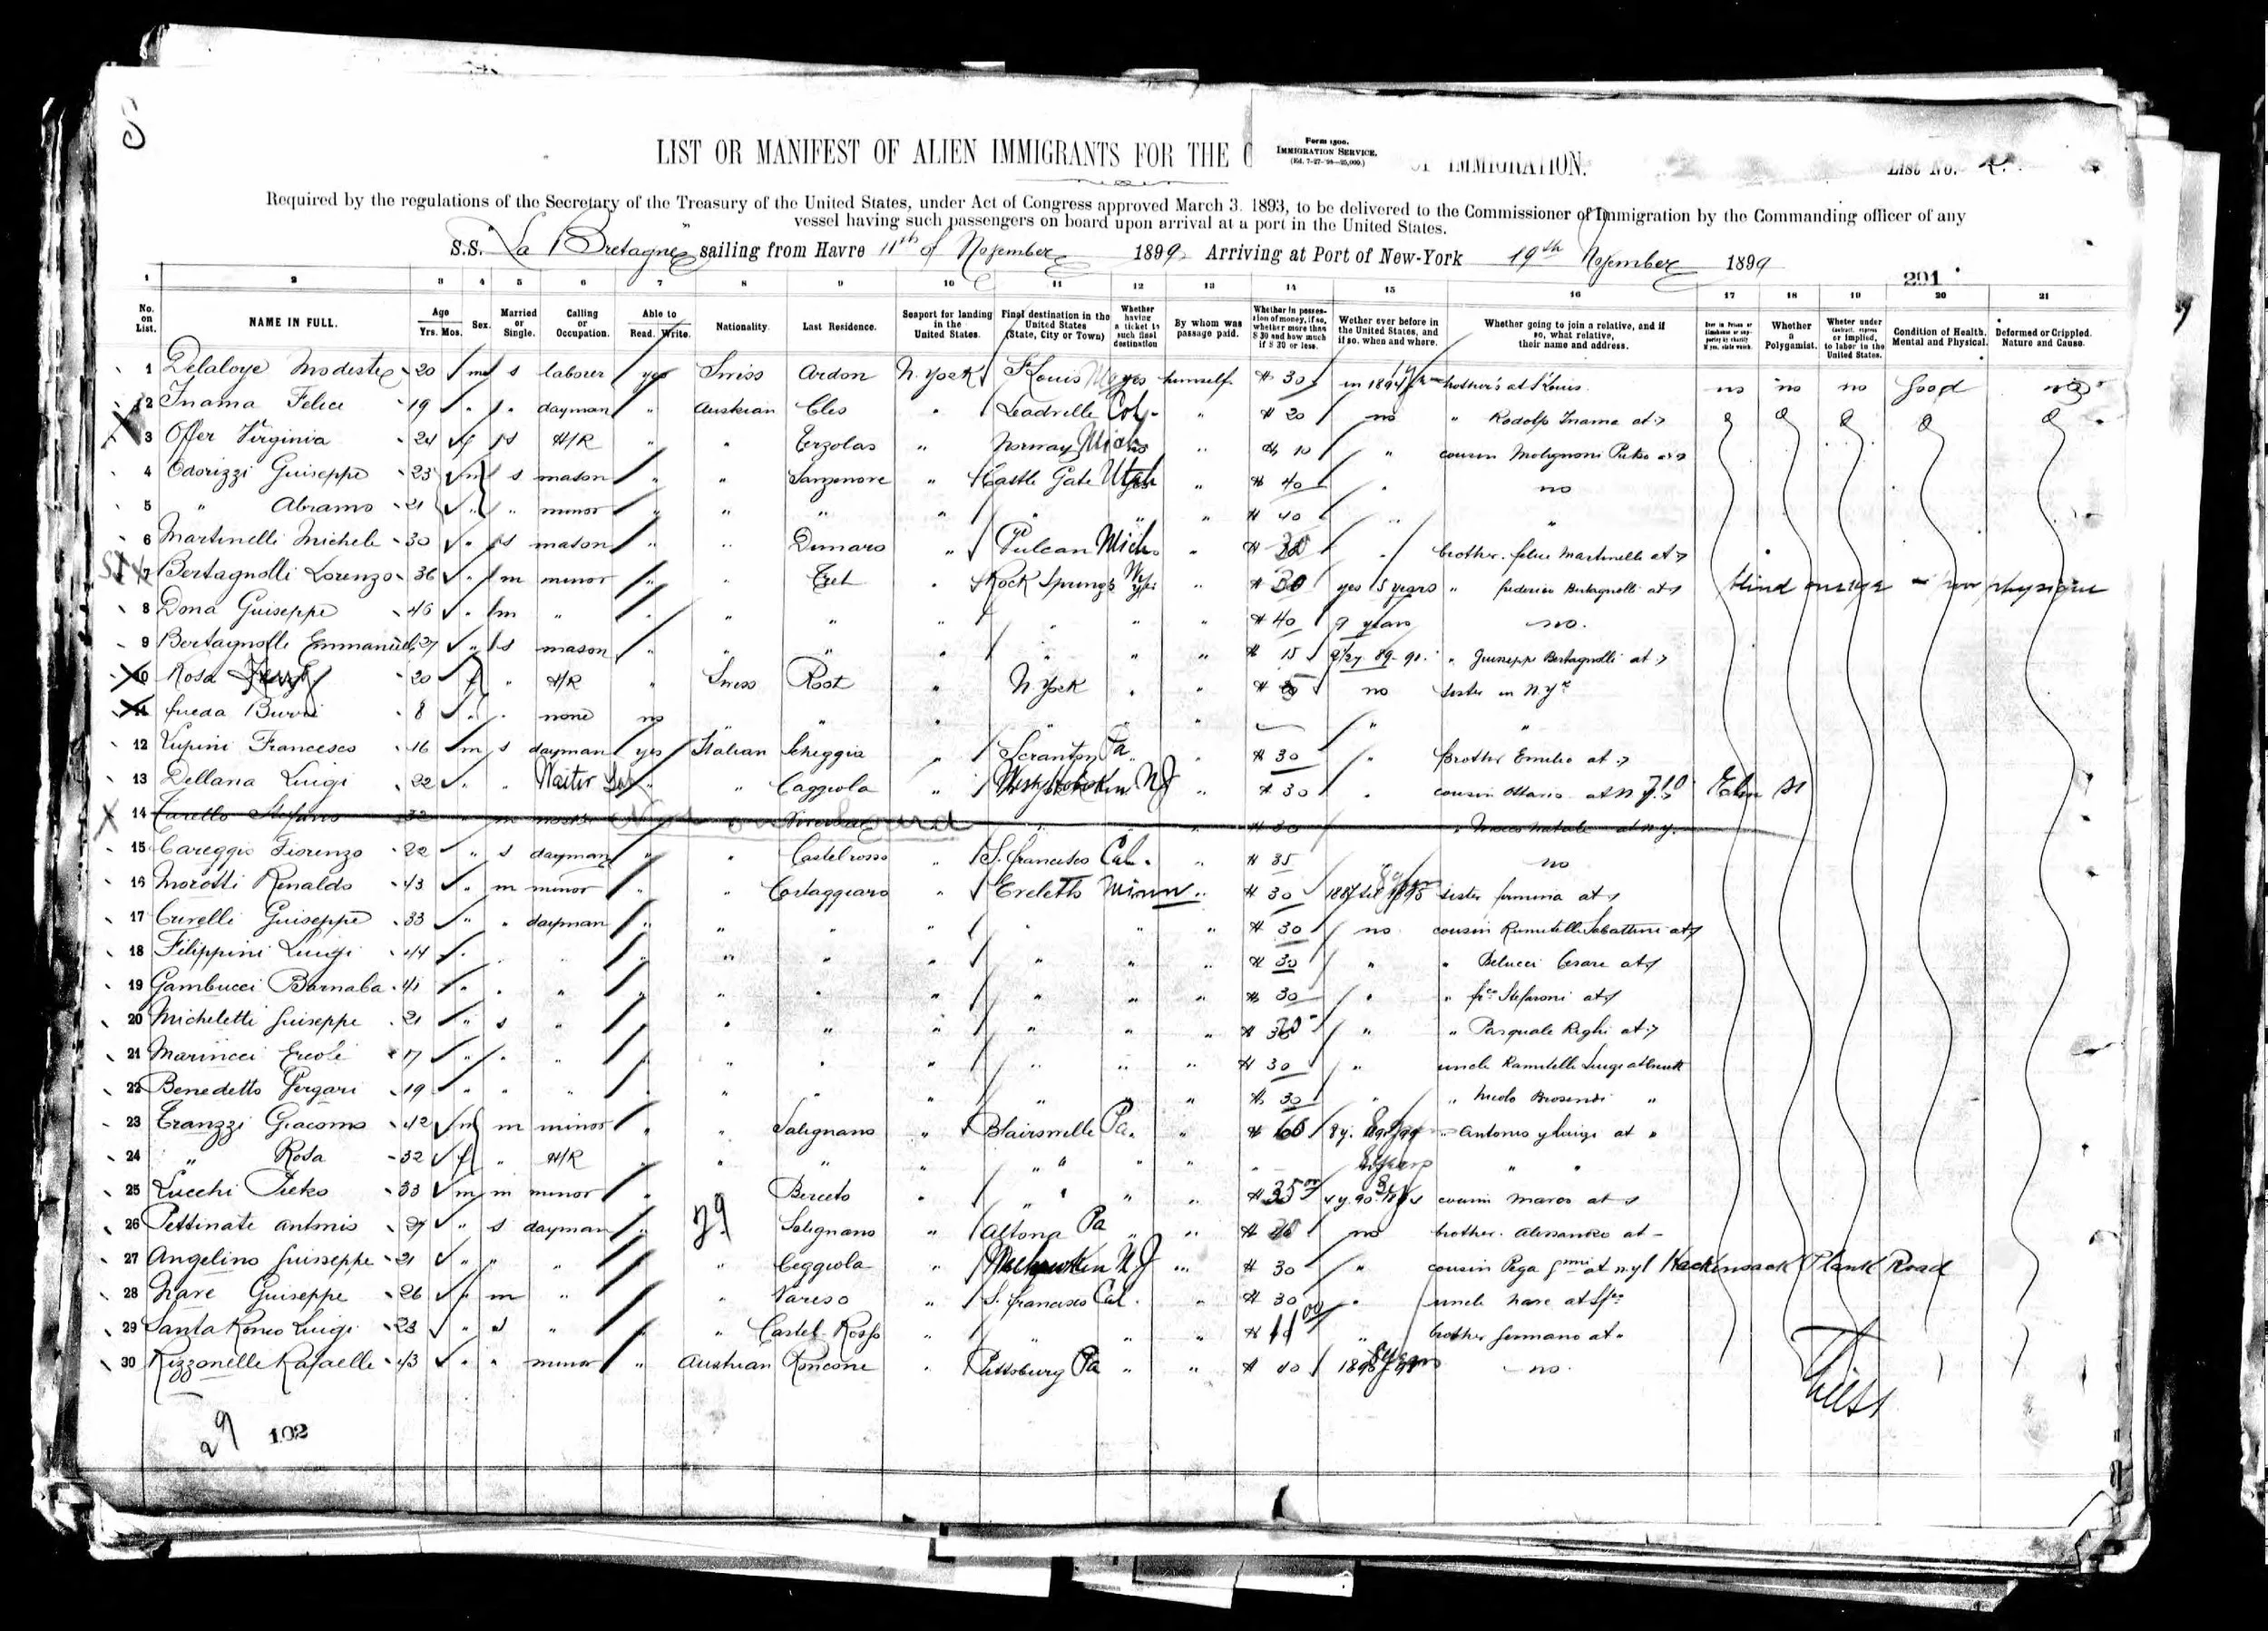 S
LIST OR MANIFEST OF ALIEN IMMIGRANTS FOR THE C
Form 1500.
IMMIGRATION SERVICE.
(Ed. 7-27-'98—25,000.)
OF IMMIGRATION.
List No.
Required by the regulations of the Secretary of the Treasury of the United States, under Act of Congress approved March 3. 1893, to be delivered to the Commissioner of Immigration by the Commanding officer of any
vessel having such passengers on board upon arrival at a port in the United States.
S.S. "La Bretagne" sailing from Havre 11th of November 1899 Arriving at Port of New-York 19th November 1899
291
1 2 3 4 5 6 7 8 9 10 11 12 13 14 15 16 17 18 19 20 21
No. on List. NAME IN FULL. Age Yrs. Mos. Sex. Married or Single. Calling or Occupation. Able to Read. Write. Nationality. Last Residence. Seaport for landing in the United States. Final destination in the United States (State, City or Town) Whether having a ticket to such final destination By whom was passage paid. Whether in possession of money, if so, whether more than $ 30 and how much if $ 30 or less. Wether ever before in the United States, and if so, when and where. Whether going to join a relative, and if so, what relative, their name and address. Whether a Polygamist. Wheter under contract, express or implied, to labor in the United States. Condition of Health, Mental and Physical. Deformed or Crippled. Nature and Cause.
1 Delaloye Modeste 20 m s laborer yes Swiss Ardon N. York St Louis yes himself $ 30 in 1894 brother's at St Louis. no no no good no
2 Inama Felice 19 " " dayman " Austrian Cles " Leadville Col. " $ 20 no " Rodolfo Inama at
3 Offer Virginia 24 f s H/R " " Terzolas " Norway Mich " $ 10 " cousin Molignoni Pietro at
4 Odorizzi Guiseppe 23 m s mason " " " Castle Gate Utah " $ 40 " no
5 " Abramo 21 " " minor " " " " " " " $ 40 " "
6 Martinelli Michele 30 " s mason " " Dimaro " Vulcan Mich. " $ " brother. felice Martinelli at
7 Bertagnolli Lorenzo 36 " m minor " " Tret " Rock Springs Wy " $ 30 yes 5 years " federico Bertagnolli at blind one eye poor physique
8 Dona Guiseppe 45 " m " " " " " " " " $ 40 9 years no.
9 Bertagnolli Emmanuel 37 " s mason " " " " " " " $ 15 89-90. " Guiseppe Bertagnolli at
10 Rosa 20 f " H/R " Swiss Root " N. York " " $ no sister in N.Y.
11 frieda Burri 8 " " none no " " " " " " " "
12 Lupini Francesco 16 m s dayman yes Italian Scheggia " Scranton Pa " $ 30 " brother Emilio at
13 Dellana Luigi 22 " " Waiter " " Caggiola " West Hoboken N J " $ 30 " cousin Ottavio at N.Y. 710 Elm St
14 Turello Stefano 32 " m Not on board " $ 30 " at n.y.
15 Careggio Fiorenzo 22 " s dayman " " Castelrosso " S. francisco Cal. " $ 35 " no
16 Morotti Rinaldo 43 " m minor " " Costacciaro " Eveleth Minn " $ 30 sister at
17 Curelli Guiseppe 33 " " dayman " " " " " " " $ 30 no cousin Sabattini at
18 Filippini Luigi 44 " " " " " " " " " " $ 30 " " Belucci Cesare at
19 Gambucci Barnaba 41 " " " " " " " " " " $ 30 " " Stefanoni at
20 Micheletti Guiseppe 21 " s " " " " " " " " $ " " Pasquale Righi at
21 Marincci Ercole 17 " " " " " " " " " " $ 30 " uncle Luigi at
22 Benedetto Pergari 19 " " " " " " " " " " $ 30 " " "
23 Tranzzi Giacomo 42 m m minor " " Salignano " Blairsville Pa. " $ 60 8 y. " Antonio y luigi at "
24 " Rosa 32 f " H/R " " " " " " " " " "
25 Lucchi Pietro 33 m m minor " " Berceto " " " " $ 35 cousin Marco at
26 Pettinate Antonio 27 " s dayman " 29 Solignano " Altona Pa " " $ no brother. Alessandro at
27 Angelino Guiseppe 21 " " " " " Ceggiola " Weehawken N J " $ 30 " cousin Pega at n.y. Hackensack Plank Road
28 Nare Guiseppe 26 " m " " " Vareso " S. francisco Cal. " $ 30 " uncle Nare at
29 Santa Ronco Luigi 23 " s " " " Castel Rosso " " " " $ 11 00 " brother Germano at "
30 Rizzonelle Rafaelle 43 " " minor " Austrian Roncone " Pittsburg Pa " " $ 40 no.
29 102